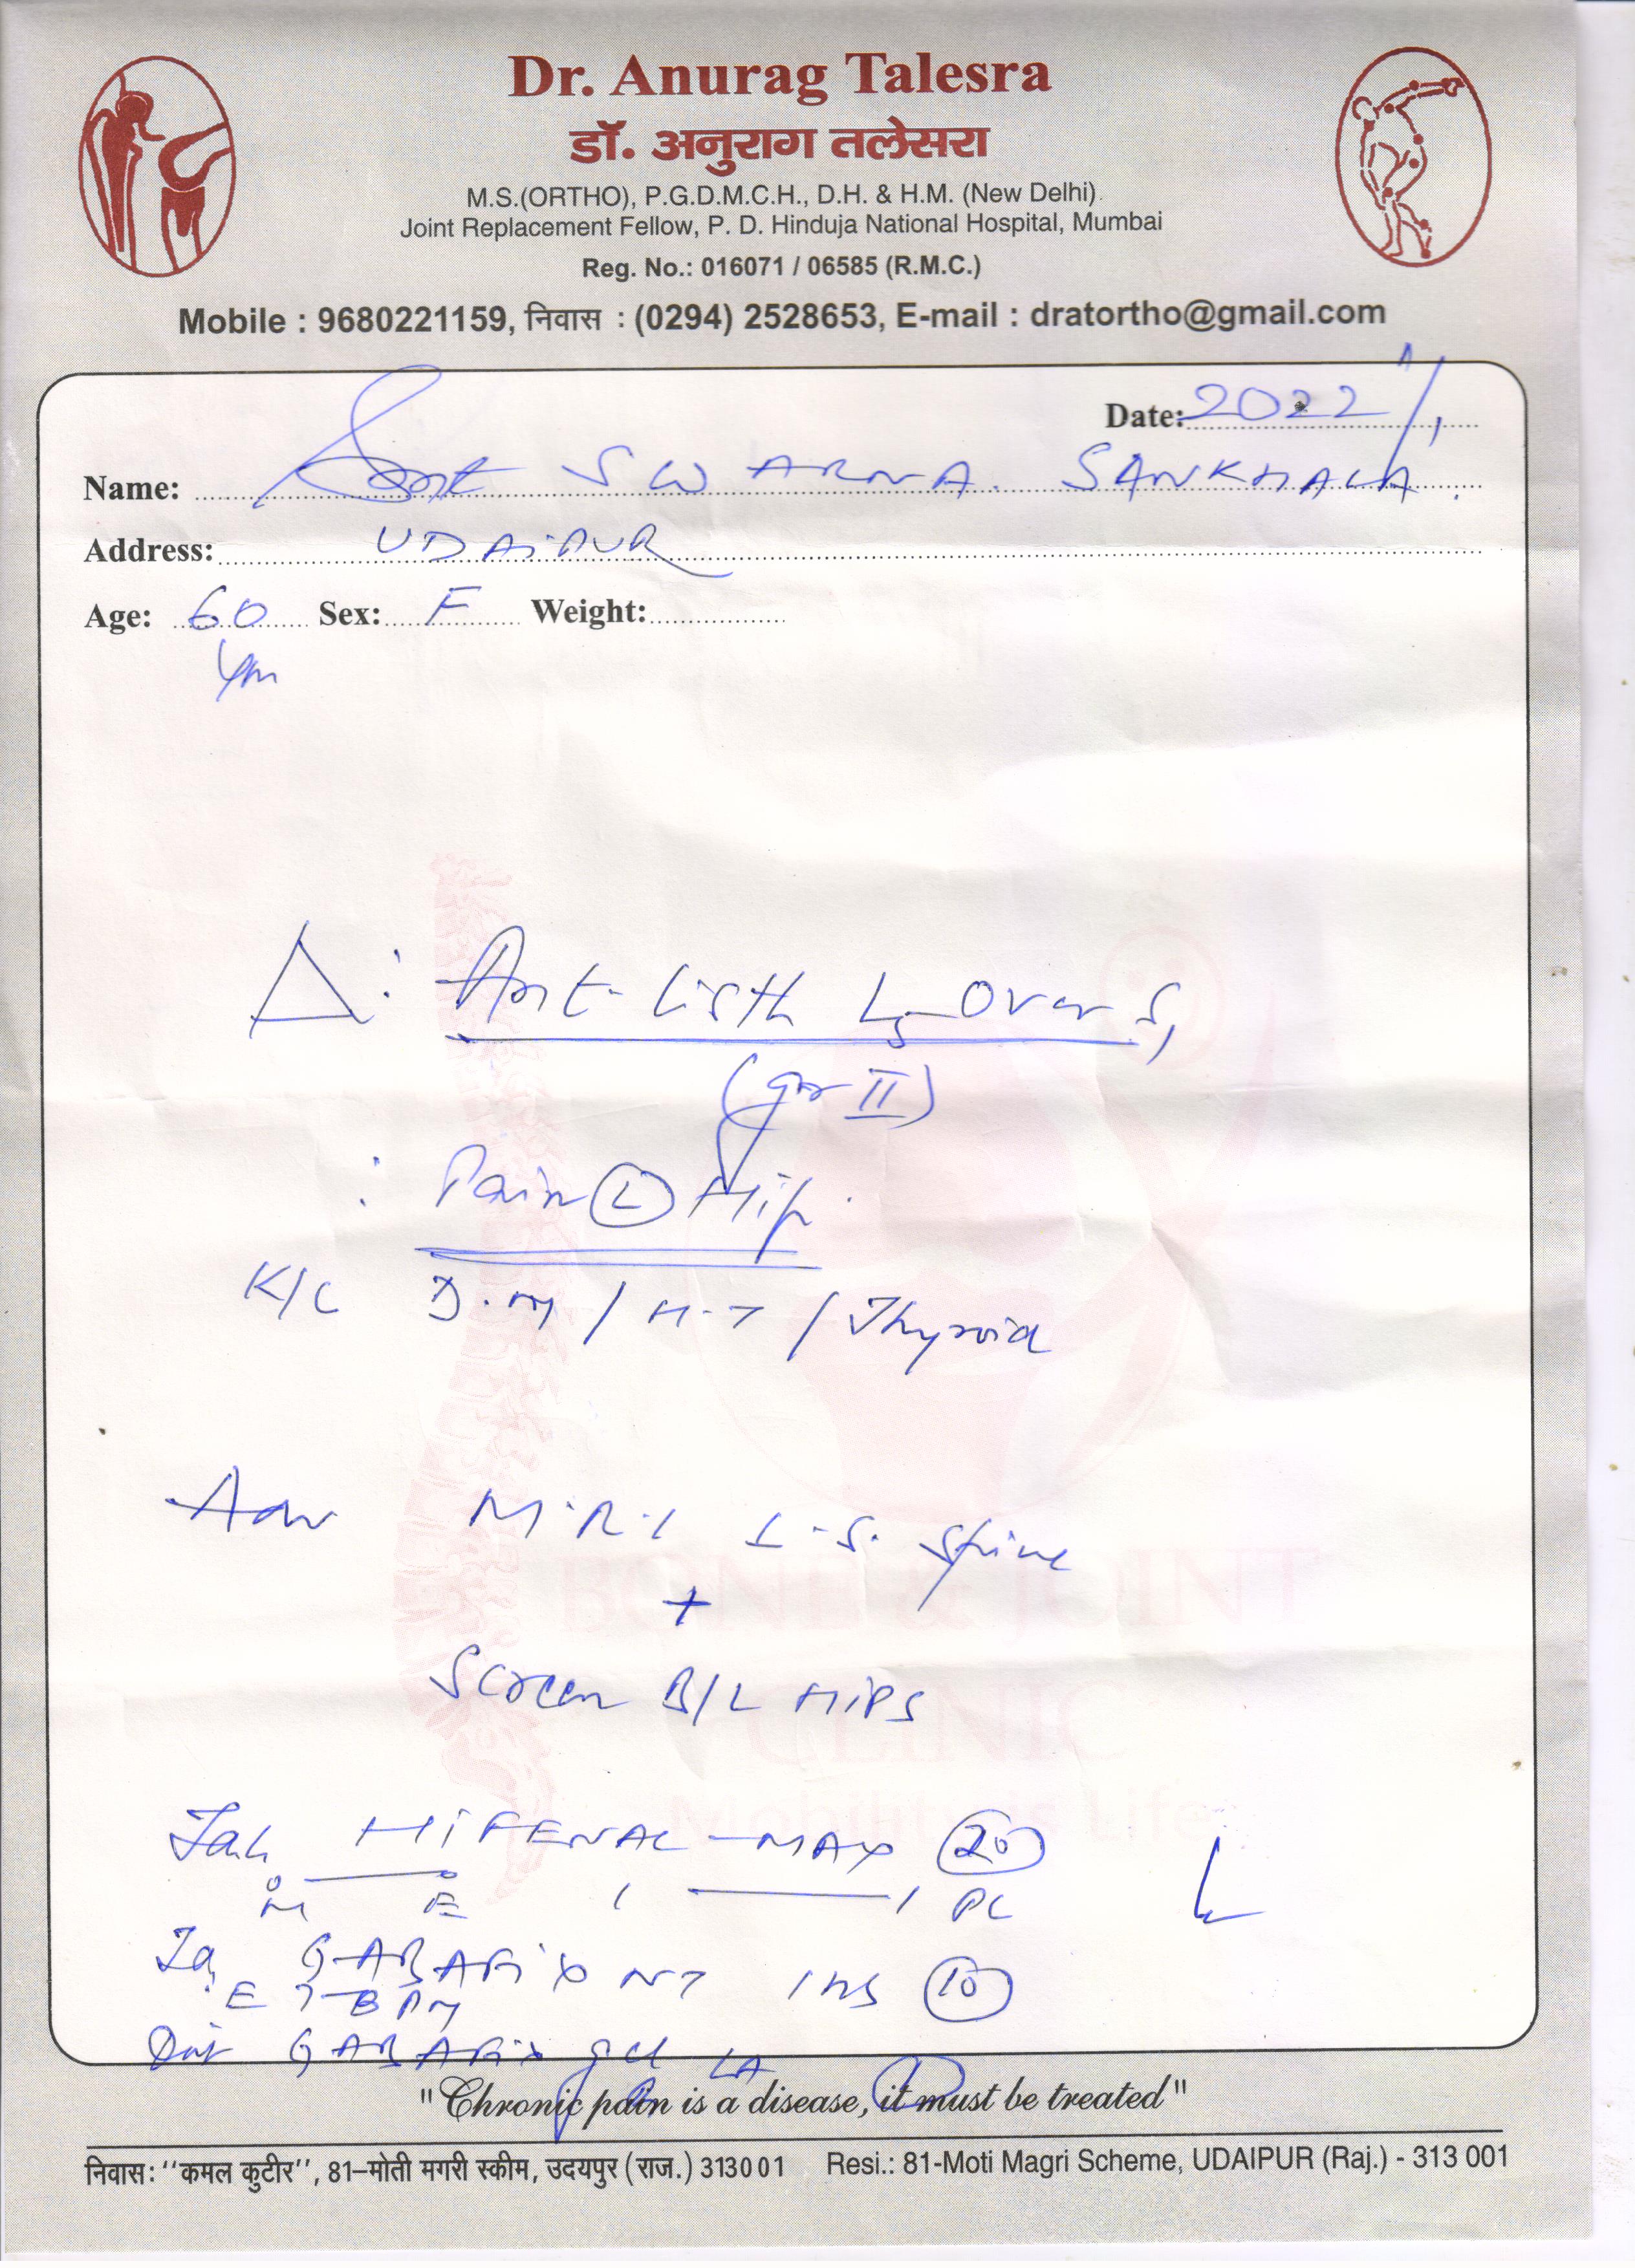 Dr. Anurag Talesra
डॉ. अनुराग तलेसरा
M.S.(ORTHO), P.G.D.M.C.H., D.H. & H.M. (New Delhi)
Joint Replacement Fellow, P. D. Hinduja National Hospital, Mumbai
Reg. No.: 016071 / 06585 (R.M.C.)
Mobile : 9680221159, निवास : (0294) 2528653, E-mail : dratortho@gmail.com
Date: 2022
Name: Smt SWARNA SANKHALA
Address: UDAIPUR
Age: 60 Sex: F Weight:
Δ: Ant-listh L5 Over S1
(gr II)
: Pain (L) Hip
K/C D.M / H.T / Thyroid
Adv M.R.I L.S. Spine
+
Screen B/L HIPS
BONE & JOINT
CLINIC
Tab. HIFENAC-MAX (20)
M E PC
GABAPIX NT 1 HS (10)
GABAPIX gel LA
"Chronic pain is a disease, it must be treated"
निवास: ''कमल कुटीर'', 81–मोती मगरी स्कीम, उदयपुर (राज.) 313001 Resi.: 81-Moti Magri Scheme, UDAIPUR (Raj.) - 313 001